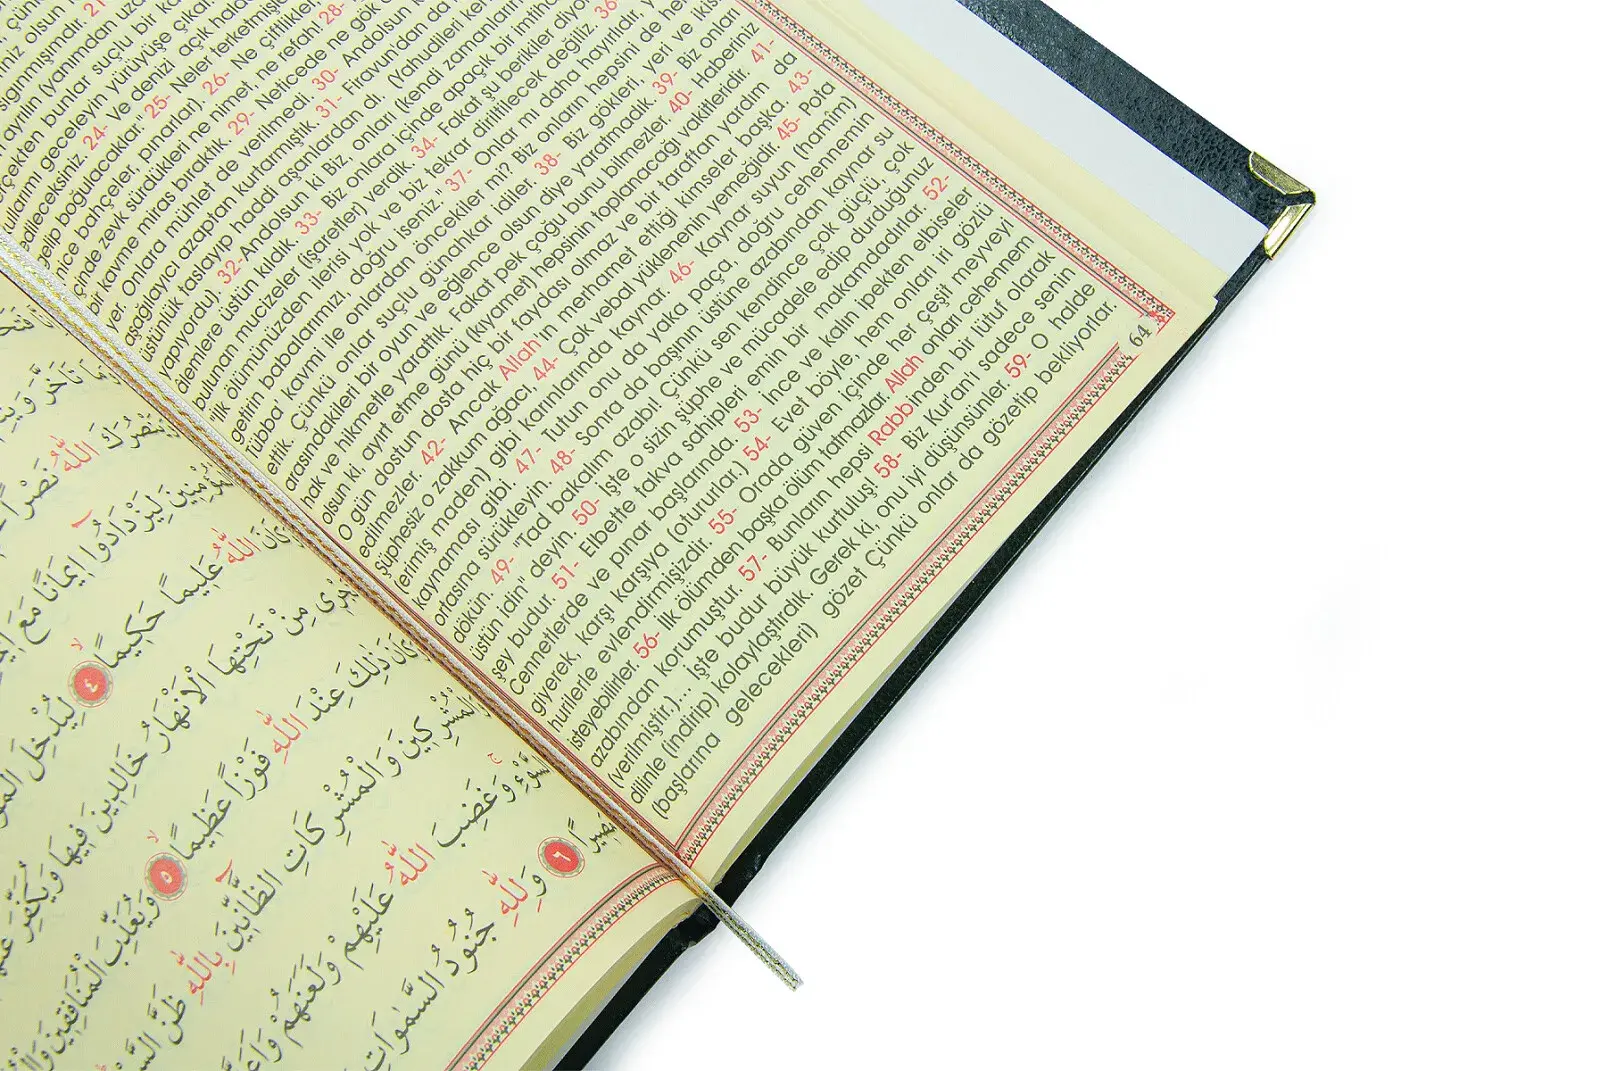 sığınmışımdır. 21-
ayrılın (yanımdan
gerçekten bunlar suçlu bir
kullarımı geceleyin yürüyüşe
24- Ve denizi açık
gelip boğulacaklar." 25- Neler
nice bahçeler, pınarlar). 26- Ne
içinde zevk sürdükleri ne nimet, ne refah! 28-
bir kavme miras bıraktık. 29- Neticede ne gök
yer. Onlara mühlet de verilmedi. 30- Andolsun
aşağılayıcı azaptan kurtarmıştık. 31- Firavun'dan
üstünlük taslayıp haddi aşanlardan dı. (Yahudileri
yapıyordu). 32- Andolsun ki Biz, onları (kendi
alemlere üstün kıldık. 33- Biz onlara içinde apaçık bir
bulunan mucizeler (işaretler) verdik. 34- Fakat şu berikiler
ilk ölümümüzden ilerisi yok ve biz tekrar diriltilecek değiliz. 36
getirin babalarımızı, doğru iseniz. 37- Onlar mı daha hayırlıdır,
Tübba' kavmi ile onlardan öncekiler mi? Biz onların hepsini de
ettik. Çünkü onlar suçlu günahkar idiler. 38- Biz gökleri, yeri ve
arasındakileri bir oyun ve eğlence olsun diye yaratmadık. 39- Biz
hak ve hikmetle yarattık. Fakat pek çoğu bunu bilmezler. 40- Haberiniz
olsun ki, ayırt etme günü (kıyamet) hepsinin toplanacağı vakitleridir. 41-
O gün dostun dosta hiç bir faydası olmaz ve bir taraftan yardım da
edilmezler. 42- Ancak Allah'ın merhamet ettiği kimseler başka. 43-
şüphesiz o zakkum ağacı, 44- Çok vebal yüklenenin yemeğidir. 45- Pota
(erimiş maden) gibi karınlarında kaynar. 46- Kaynar suyun (hamim)
kaynaması gibi. 47- Tutun onu da yaka paça, doğru cehennemin
ortasına sürükleyin. 48- Sonra da başının üstüne azabından kaynar su
dökün. 49- "Tad bakalım azabı! Çünkü sen kendince çok güçlü, çok
üstün idin" deyin. 50- İşte o sizin şüphe ve mücadele edip durduğunuz
şey budur. 51- Elbette takva sahipleri emin bir makamdadırlar. 52-
Cennetlerde ve pınar başlarında. 53- İnce ve kalın ipekten elbiseler
giyerek, karşı karşıya (otururlar.) 54- Evet böyle, hem onları iri gözlü
hurilerle evlendirmişizdir. 55- Orada güven içinde her çeşit meyveyi
isteyebilirler. 56- İlk ölümden başka ölüm tatmazlar. Allah onları cehennem
azabından korumuştur. 57- Bunların hepsi Rabbinden bir lütuf olarak
(verilmiştir.)... İşte budur büyük kurtuluş! 58- Biz Kur'an'ı sadece senin
dilinle (indirip) kolaylaştırdık. Gerek ki, onu iyi düşünsünler. 59- O halde
(başlarına gelecekleri) gözet Çünkü onlar da gözetip bekliyorlar.
64
تَاَخَّرَ
اللّٰهُ نَصْرًا
لِيَزْدَادُوا اِيمَانًا مَعَ
اللّٰهُ عَلِيمًا حَكِيمًا ٤ لِيُدْخِلَ
مِنْ تَحْتِهَا الْاَنْهَارُ خَالِدِينَ فِيهَا وَيُكَفِّرَ
ذٰلِكَ عِنْدَ اللّٰهِ فَوْزًا عَظِيمًا ٥ وَيُعَذِّبَ الْمُنَافِقِينَ
وَالْمُشْرِكَاتِ الظَّانِّينَ بِاللّٰهِ ظَنَّ
وَغَضِبَ اللّٰهُ عَلَيْهِمْ وَلَعَنَهُمْ
٦ وَلِلّٰهِ جُنُودُ السَّمٰوَاتِ